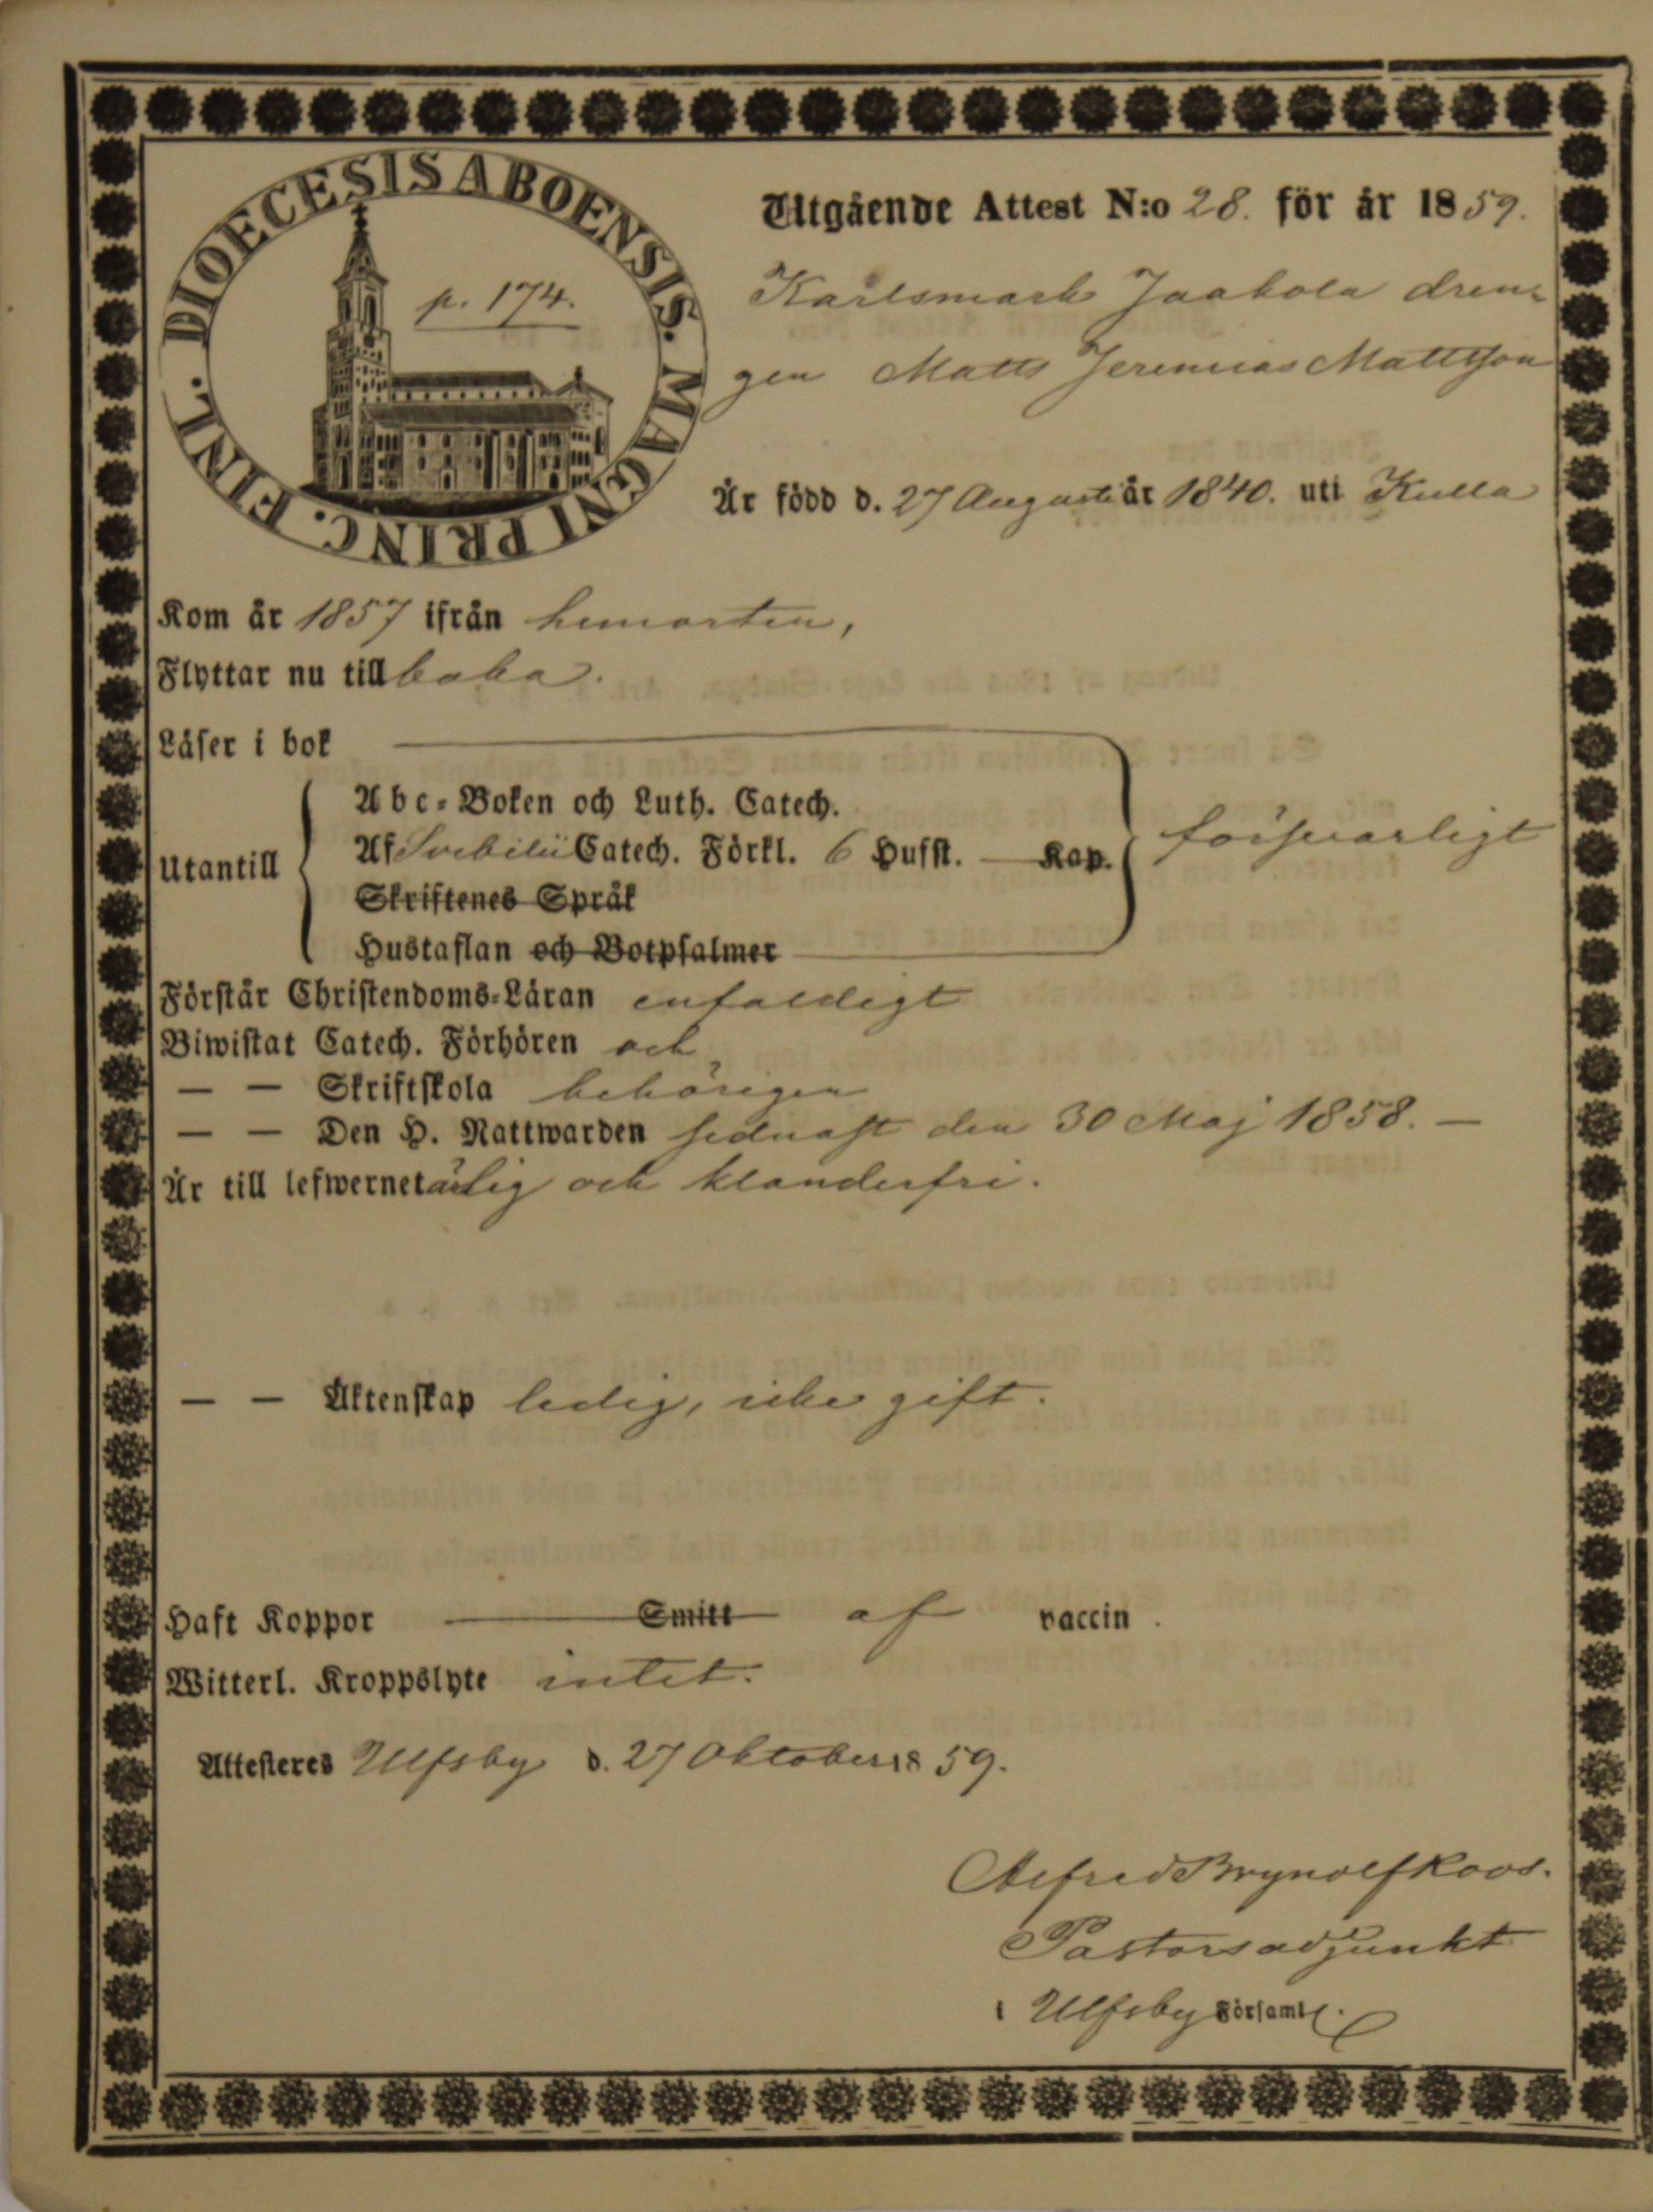 DIOECESIS ABOENSIS. MAGNI PRINC. FINL.
p. 174.
Utgående Attest N:o 28. för år 1859.
Karlsmark Jaakola dren-
gen Matts Jeremias Mattsson
Är född d. 27 Augusti år 1840. uti Kulla
Kom år 1857 ifrån hemorten,
Flyttar nu till baka.
Läser i bok
Utantill
Abc-Boken och Luth. Catech.
Af Svebilii Catech. Förkl. 6 Hufst. Kap.
försvarligt
Skriftenes Språk
Hustaflan och Botpsalmer
Förstår Christendoms-Läran enfaldigt
Biwistat Catech. Förhören och
— — Skriftskola behörigen
— — Den H. Nattwarden sednast den 30 Maj 1858. —
Är till lefwernet ärlig och klanderfri.
— — Äktenskap ledig, icke gift.
Haft Koppor Smitt af vaccin.
Witterl. Kroppslyte intet.
Attesteres Ulfsby d. 27 Oktober 1859.
Alfred Brynolf Roos.
Pastorsadjunkt
i Ulfsby Församl.